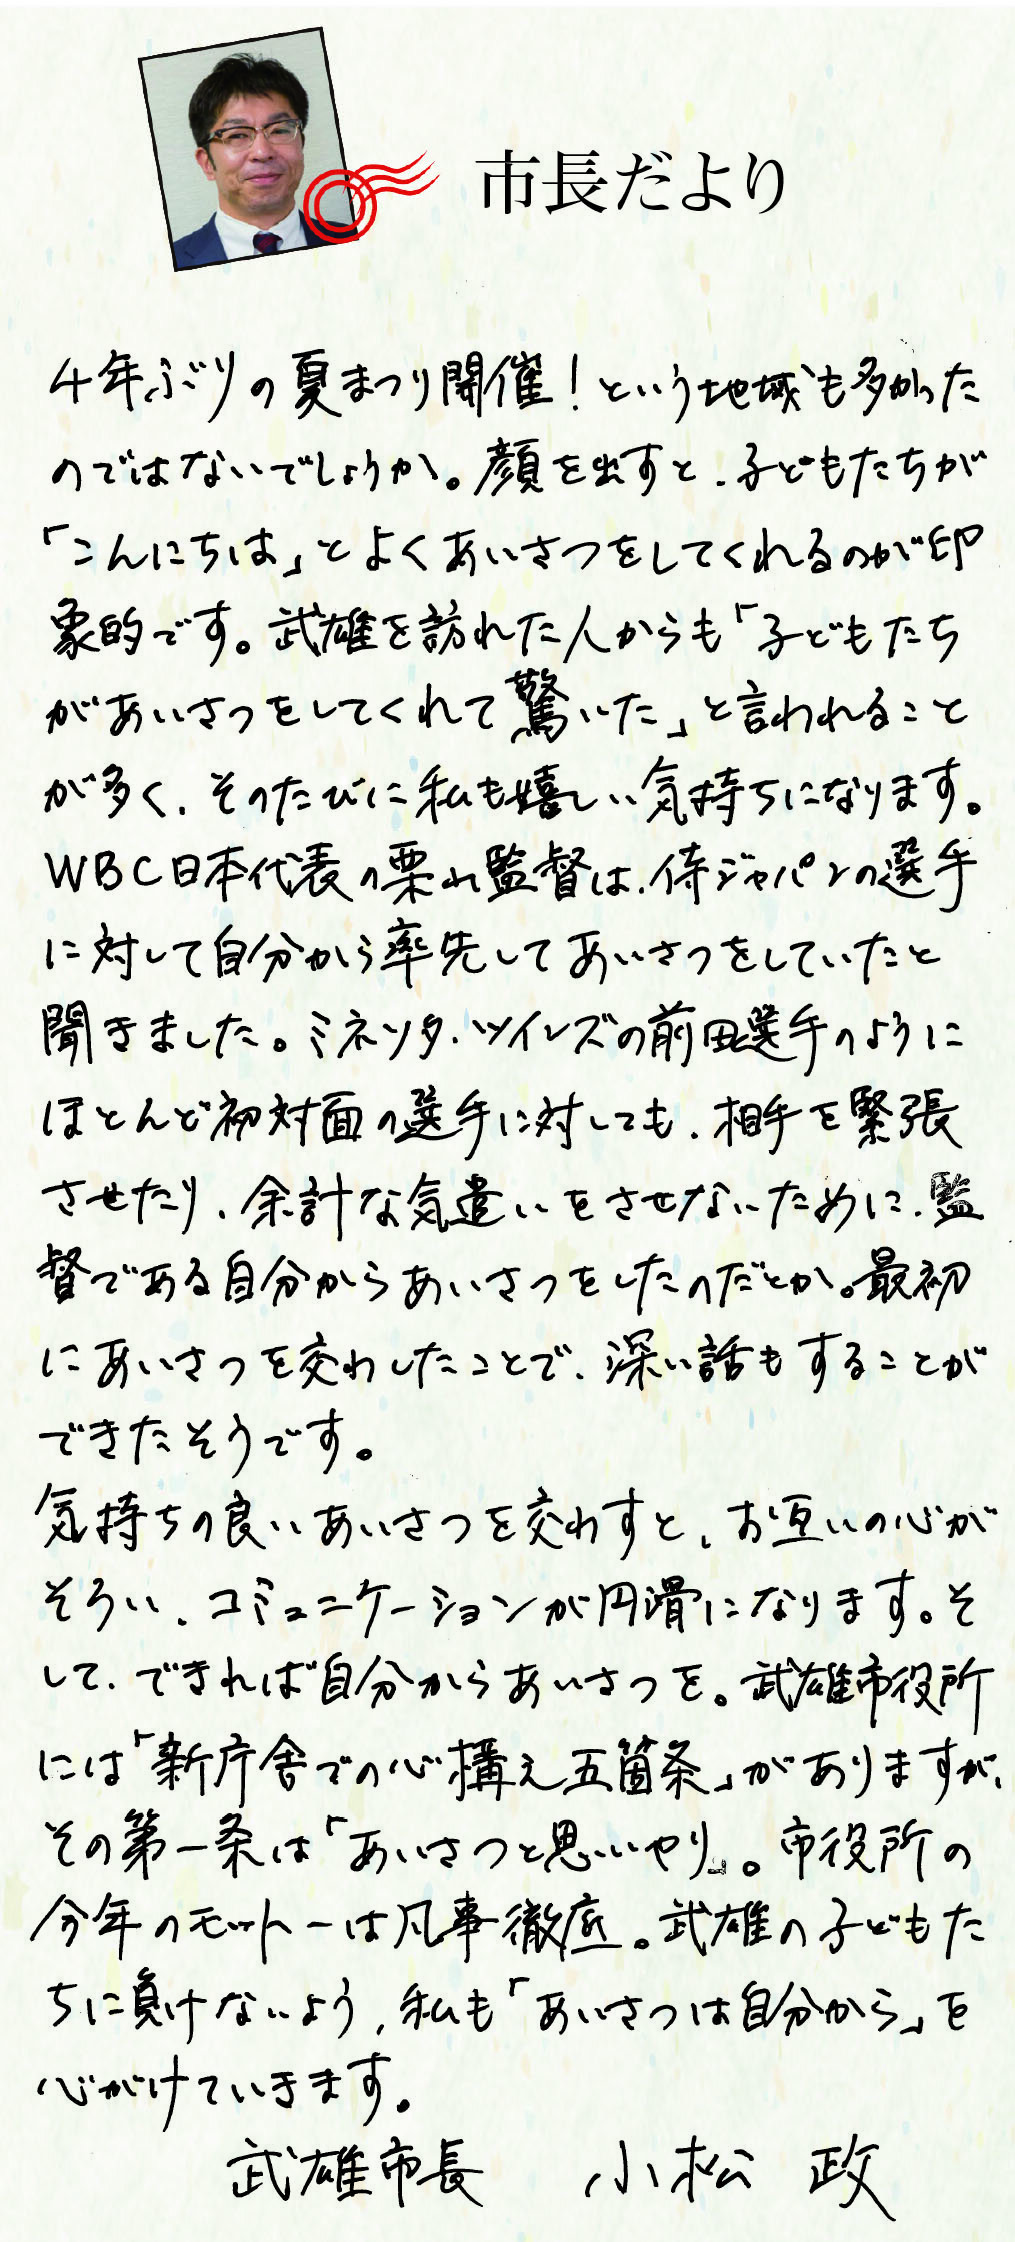 市長だより
4年ぶりの夏まつり開催！という地域も多かった
のではないでしょうか。顔を出すと、子どもたちが
「こんにちは」とよくあいさつをしてくれるのが印
象的です。武雄を訪れた人からも「子どもたち
があいさつをしてくれて驚いた」と言われること
が多く、そのたびに私も嬉しい気持ちになります。
WBC日本代表の栗山監督は、侍ジャパンの選手
に対して自分から率先してあいさつをしていたと
聞きました。ミネソタ・ツインズの前田選手のように
ほとんど初対面の選手に対しても、相手を緊張
させたり、余計な気遣いをさせないために、監
督である自分からあいさつをしたのだとか。最初
にあいさつを交わしたことで、深い話もすることが
できたそうです。
気持ちの良いあいさつを交わすと、お互いの心が
そろい、コミュニケーションが円滑になります。そ
して、できれば自分からあいさつを。武雄市役所
には「新庁舎での心構え五箇条」がありますが、
その第一条は「あいさつと思いやり」。市役所の
今年のモットーは凡事徹底。武雄の子どもた
ちに負けないよう、私も「あいさつは自分から」を
心がけていきます。
武雄市長 小松 政